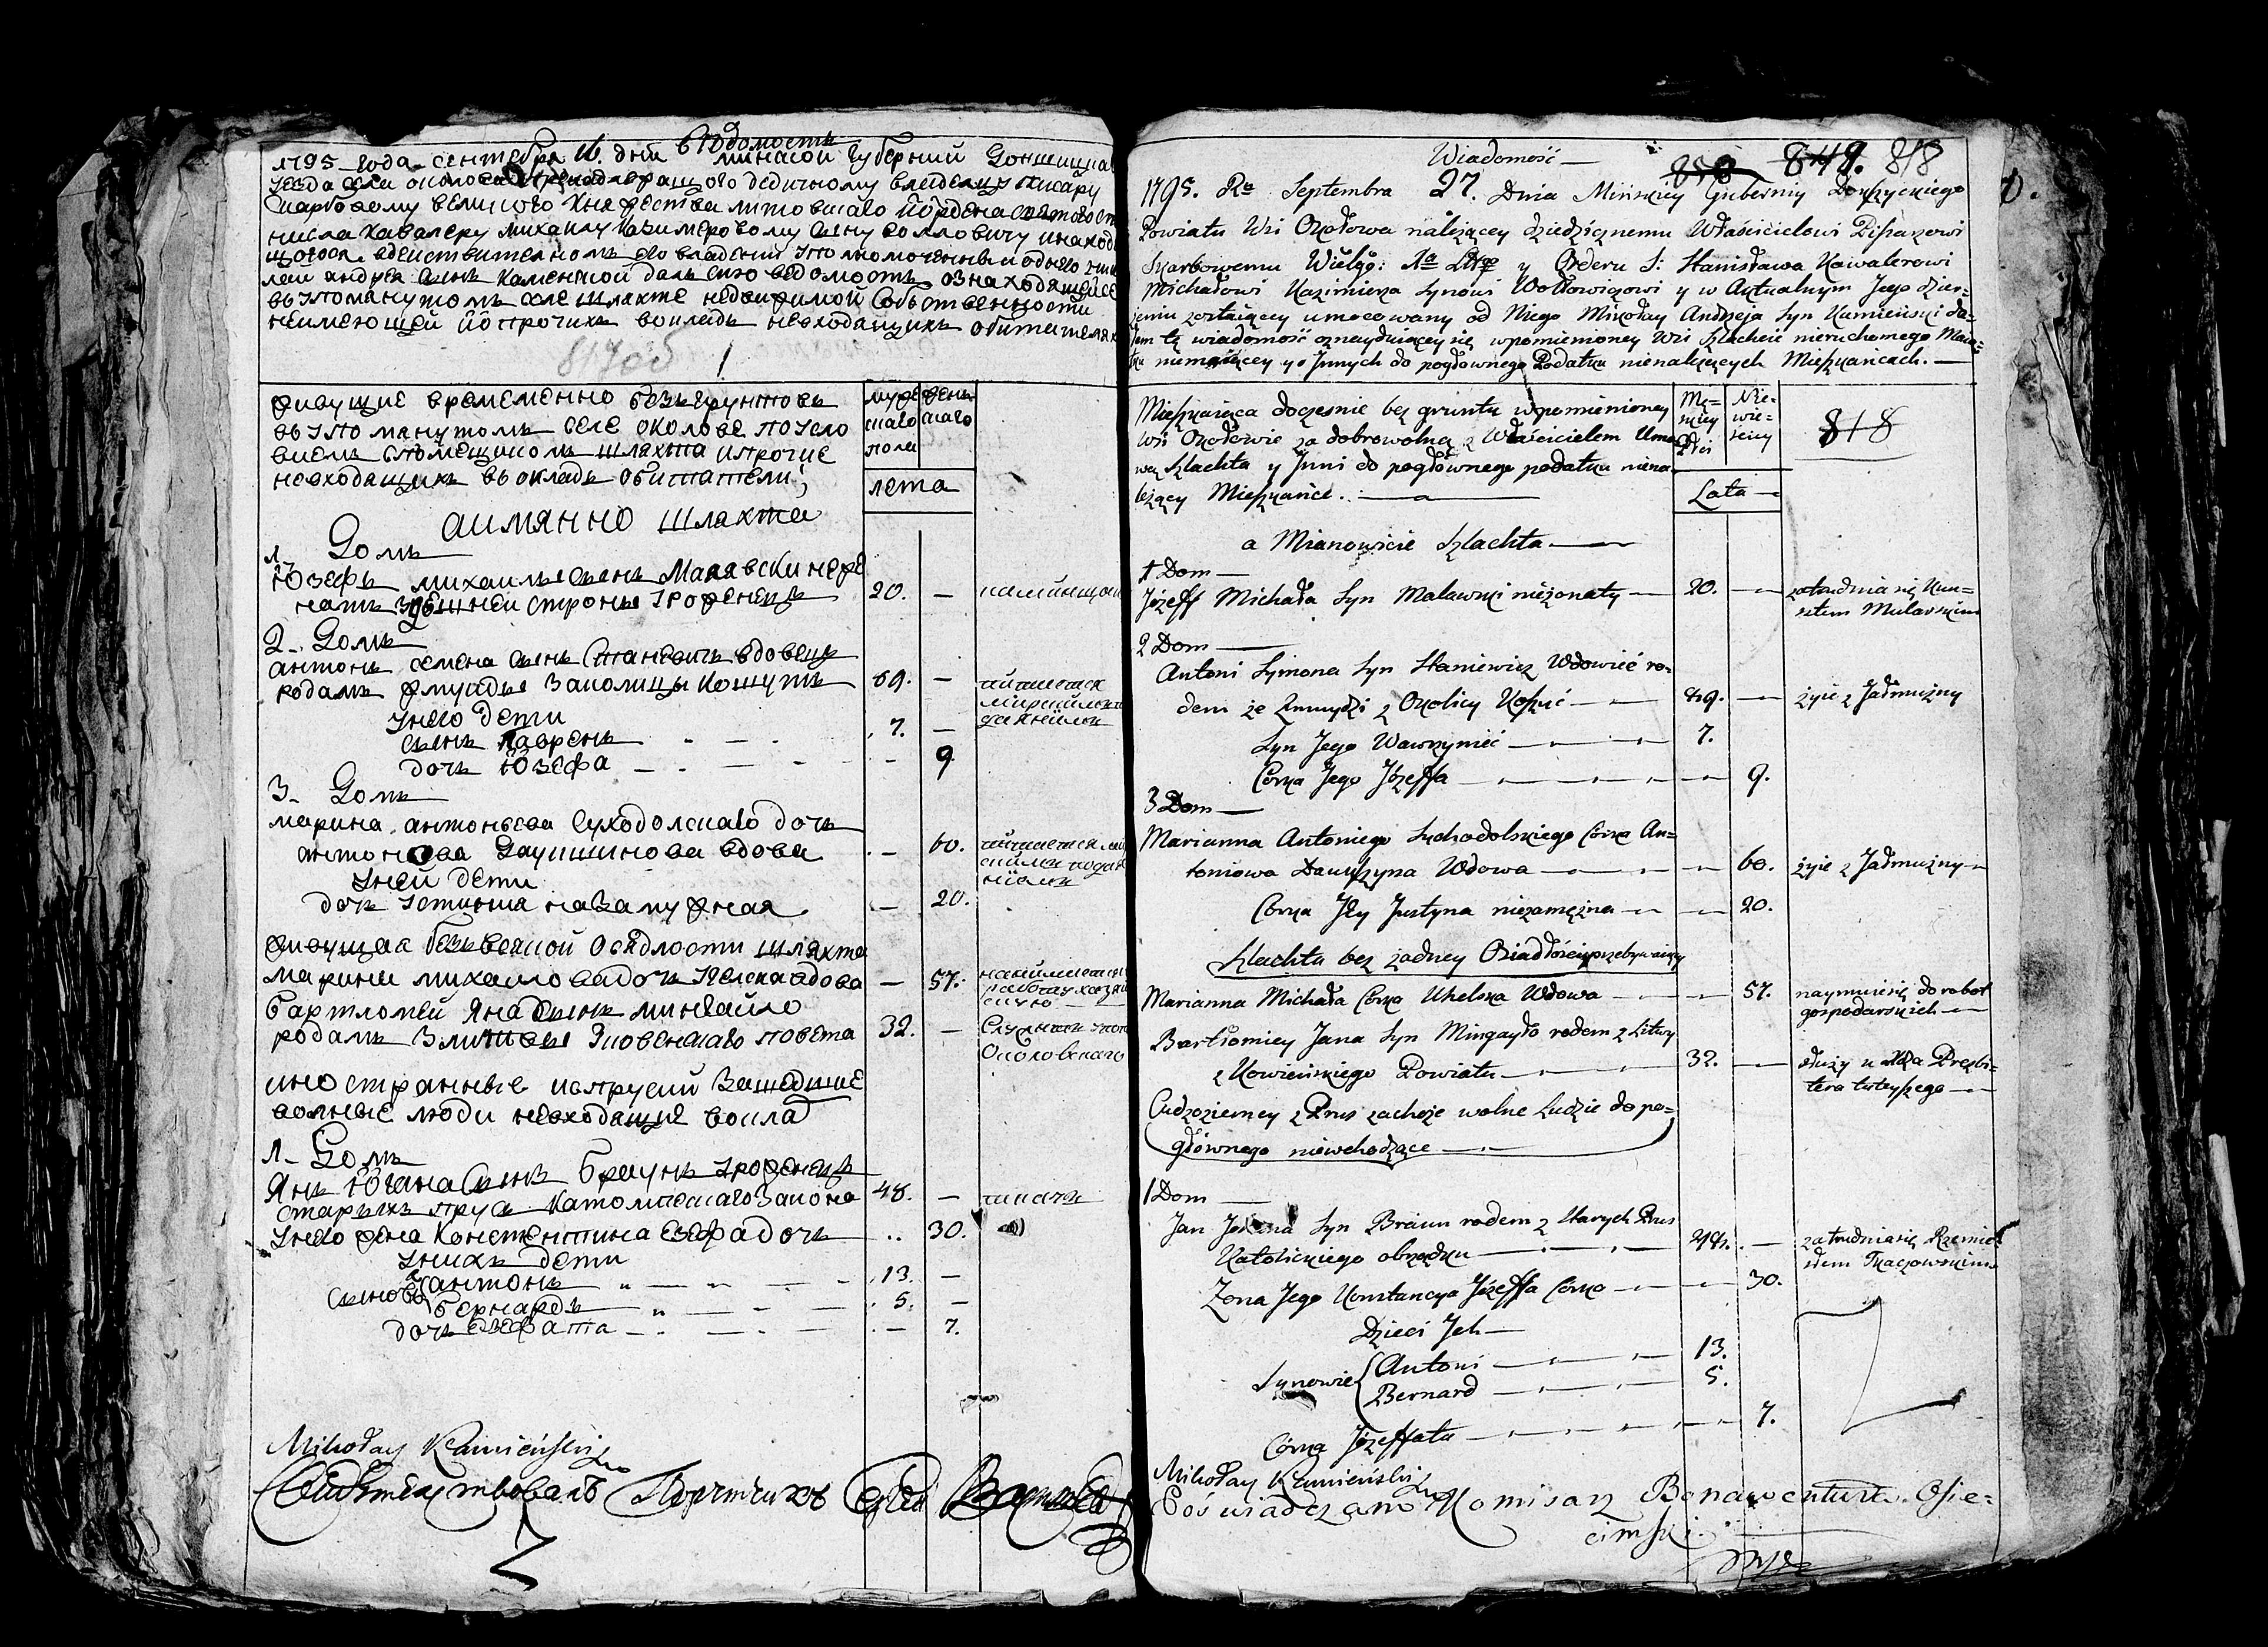 Вѣдомость
1795 года сентебра 16. дни минской Губерний
уезда села околова дедичному владелцу писару
скарбовому великого княжества литовского й ордена
кавалеру михаилу казимеровому сыну волловичу
андреа сынъ каменской далъ сию ведомость
въ упоманутомъ селе шляхте недвижимой собственности
неимеющей й о прочихъ вокладъ невходащихъ обитателях
817об
живущие временно безъ грунтовъ
въ упоманутомъ селе околове по усло
виемъ спомещикомъ шляхта ипрочие
невходащихъ вокладъ обитатели;
муже скаго пола
женскаго
лета
аимянно шляхта
1. Домъ
Юзефъ михаила сынъ Малявски неже
натъ здешней стороны уроженецъ 20. —
2. Домъ
антонъ семена сынъ Станевичъ вдовецъ
родамъ жмудьи Заколицы Кошуть 69. —
унего дети
сынъ лавренъ 7. —
дочъ Юзефа — 9
3. Домъ
марина антоньева Суходолскаго дочъ
антонова Даукшинова вдова — 60.
уней дети
дочъ устинна незамужная — 20.
живущаа безъ всякой осѣдлости шляхта
марина михаилова дочъ Уелска вдова — 57.
бартломей Яна сынъ мингайло
родамъ Злитвы Ковенскаго повета 32. —
иностранные испрусии Зашедшие
волные люди невходащие воклад
1. Домъ
Янъ Югана Сынъ Браунъ уроженецъ
старыхъ прус. Католицскаго Закона 48. — ткачъ
унего жена Констентина Езефа дочъ .. 30.
унихъ дети
сынове антонъ 13. —
бернардъ 5. —
дочъ езефата — 7.
Mikołay Kamieński
Свидѣтельствовалъ Порутчикъ
Wiadomość
858 849. 818
1795. Ru Septembra 27. Dnia Mińskiey Gubernij Dokszyckiego
Powiatu Wsi Okołowa należącey dziedzicznemu Właścicielowi Pisarzowi
Skarbowemu Wielgo: Xa Littgo y Orderu S: Stanisława Kawalerowi
Michałowi Kazimierza Synowi Wołłowiczowi y w Aktualnym Jego dzier=
żeniu zostaiącey umocowany od Niego Mikołay Andrzeja Syn Kamieński da=
łem tę wiadomość oznayduiącey się wpomienioney Wsi Szlachcie nieruchomego Mają=
tku niemaiącey y o Jnnych do pogłownego Podatku nienależących Mieszkańcach.
Mieszkaiąca doczesnie bez gruntu wpomienioney
Wsi Okołowie za dobrowolną z Właścicielem Umo=
wą Szlachta y Jnni do pogłownego podatku niena
leżący Mieszkańce.
Mę=
skiey
Płci
Nie=
wie=
sciey
818
Lata
a Mianowicie Szlachta
1 Dom
Józeff Michała Syn Malawski nieżonaty 20. — zatrudnia się Kun=
sztem Mularskim
2 Dom
Antoni Symona Syn Staniewicz Wdowiec ro=
dem ze Zmuydzi z Okolicy Koszuć 69. — żyie z Jałmużny
Syn Jego Wawrzyniec 7.
Corka Jego Józeffa 9.
3 Dom
Marianna Antoniego Suchodolskiego Corka An=
toniowa Daukszyna Wdowa — 60. żyie z Jałmużny
Corka Jey Justyna niezamężna — 20.
Szlachta bez żadney Osiadłości przebywaiący
Marianna Michała Corka Uhelska Wdowa — 57. naymuie się do robot
gospodarskich
Bartłomiey Jana Syn Mingayło rodem z Litwy
z Kowieńskiego Powiatu 32. — służy u Xdza Prezbi=
tera tuteyszego
Cudzoziemcy z Prus zaszłe wolne Ludzie do po=
głównego niewchodzące
1 Dom
Jan Johana Syn Braun rodem z Starych Prus
Katolickiego obrządku 48. — zatrudnia się Rzemie=
słem Tkaczowskim
Zona Jego Konstancya Józeffa Corka — 30.
Dzieci Jch
Synowie Antoni 13.
Bernard 5.
Córka Józeffata 7.
Mikołay Kamieński
Poświadczam Komisarz Bonawentura Osie=
cimski